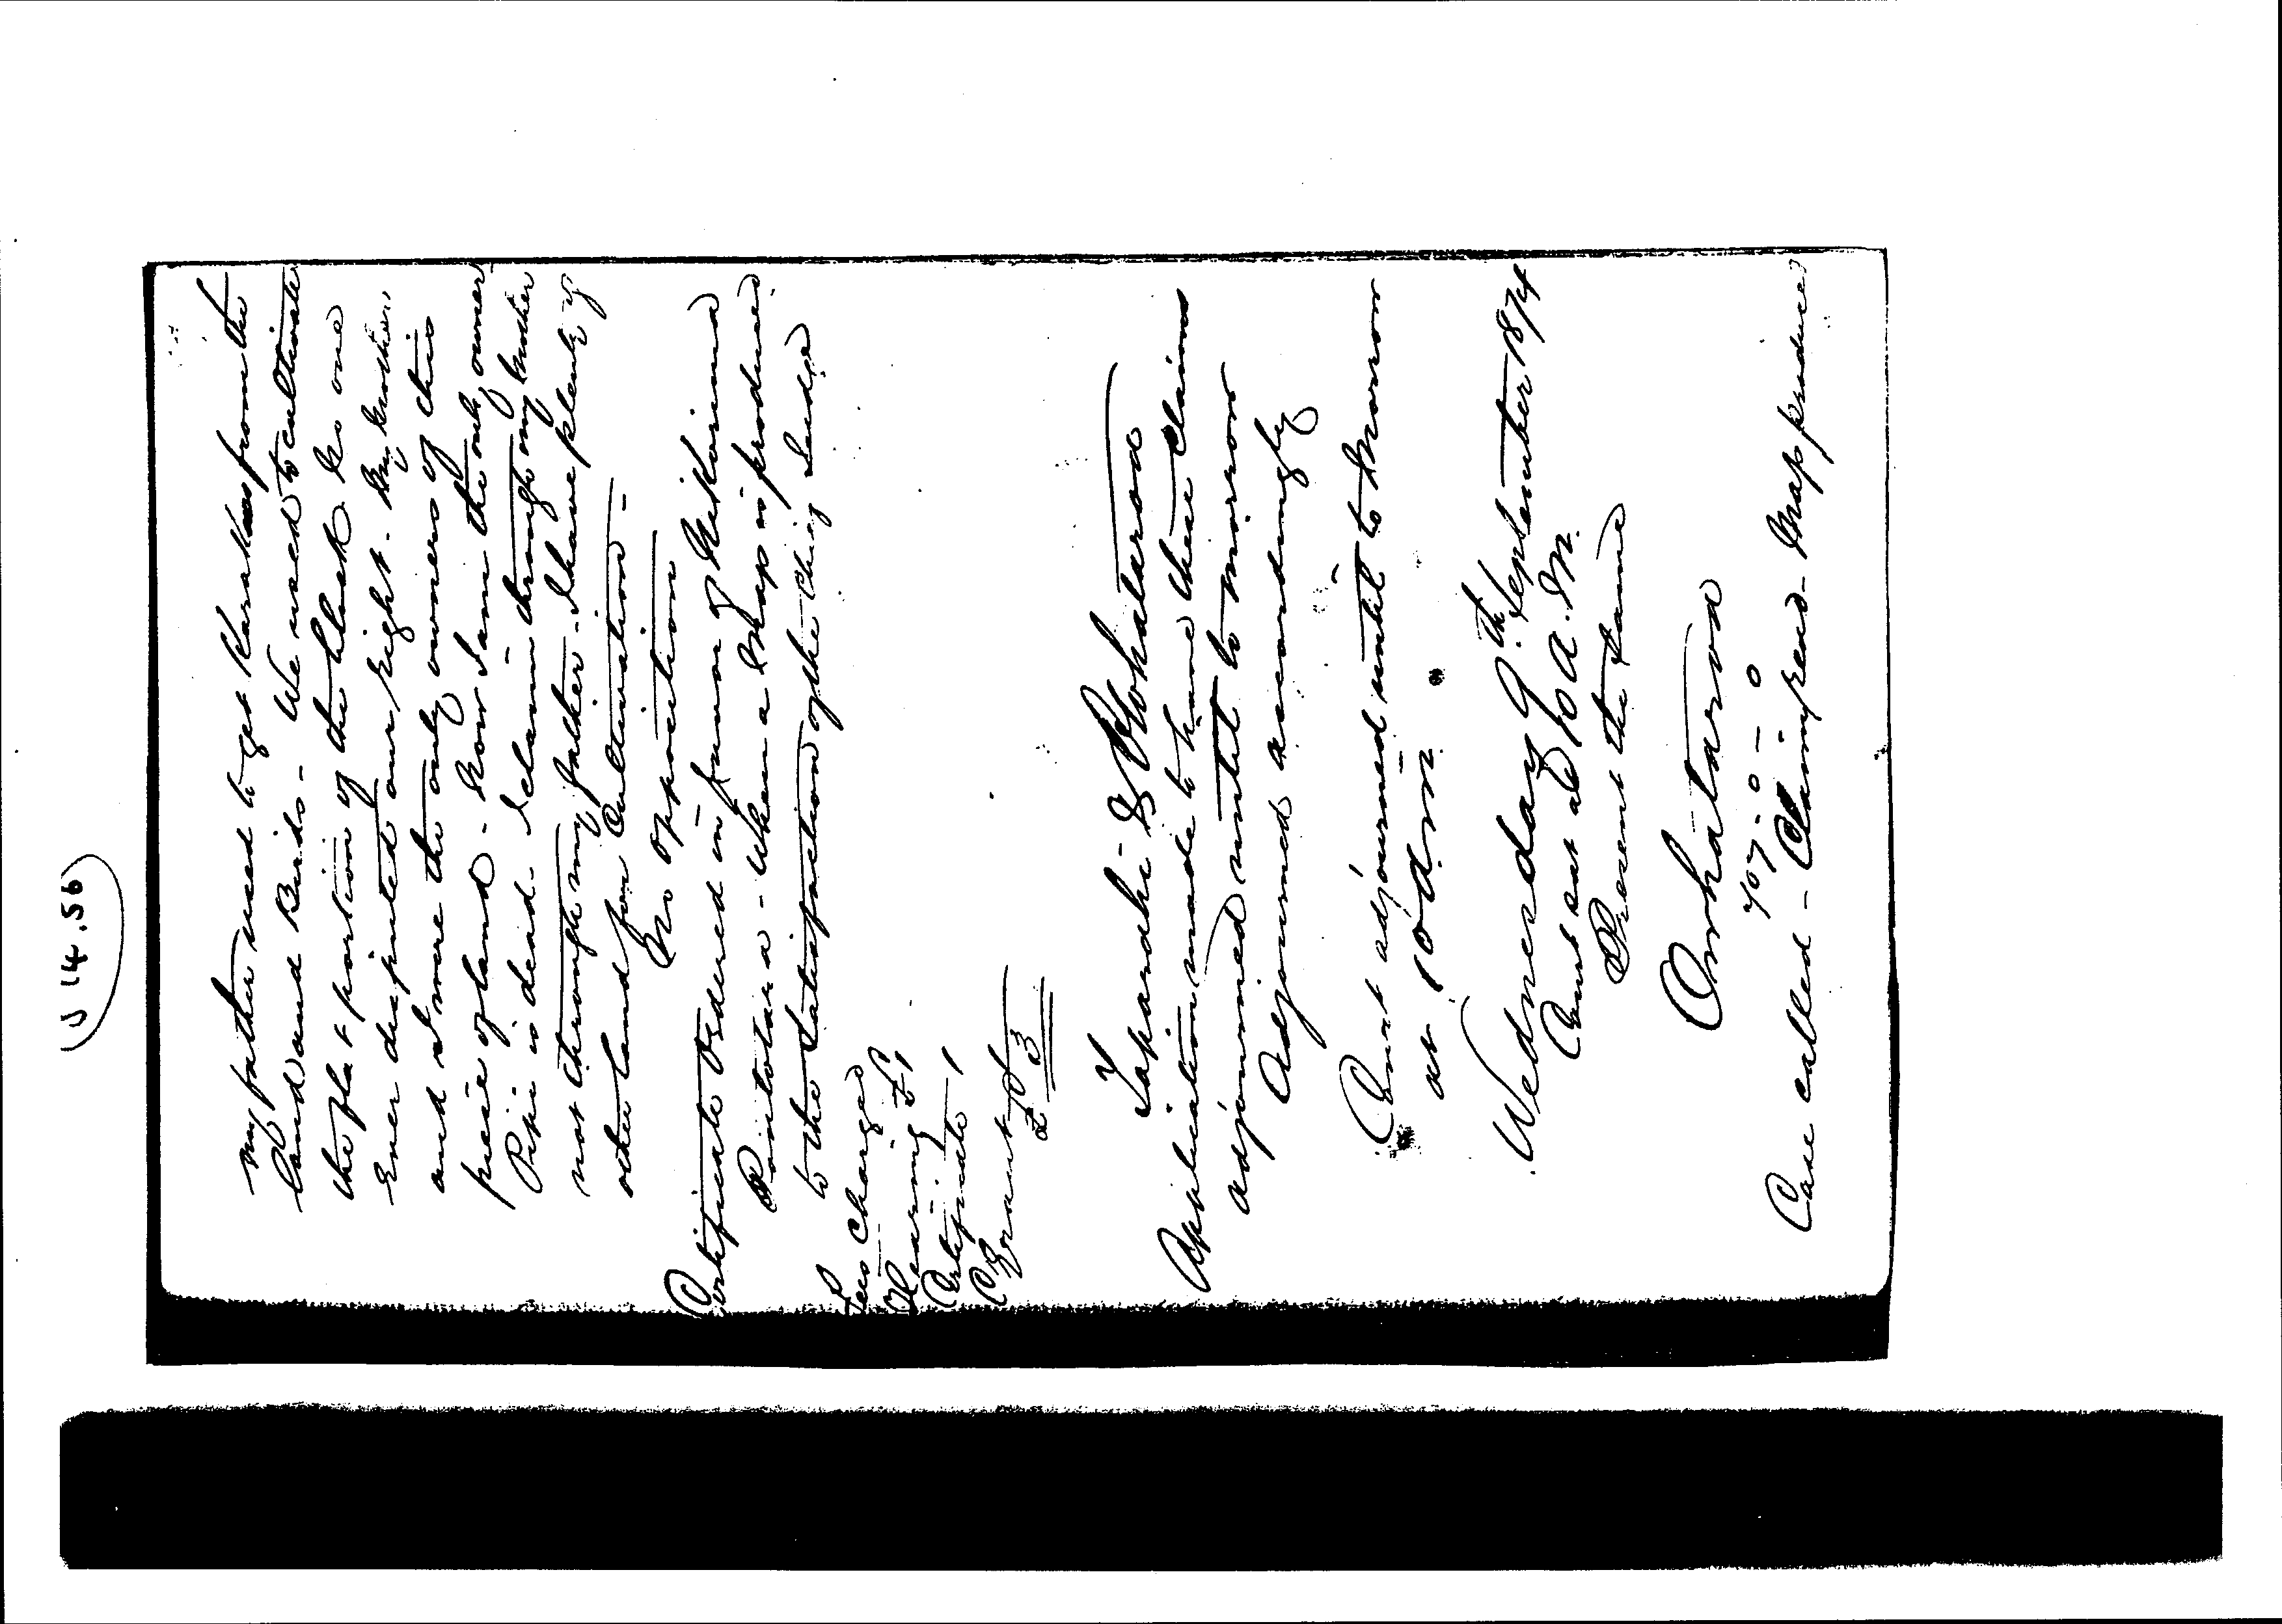 J 14.56
My father used to get Karakas from the
land and Birds – We used to cultivate
the flat portion of the block No one
Ever disputed our right. My brother
and I were the only owners of this
piece of land – Now I am the only owner
Pipi is dead – I claim through my mother
not through my father – I have plenty of
other land for Cultivation –
No opposition
Certificate Ordered in favor of
when a Map is produced
to the satisfaction of the Chief Judge
Fees Charged
Hearing £1
Certificate 1
C Grant 1
£3
Taparahi & Whataroa
Application made to have these Claims
adjourned until to morrow
Adjourned accordingly
Court adjourned until to Morrow
at 10 A.M.
Wednesday 9th September 1874
Court sat at 10 A.M.
Present the same
Owhataroa
707 – 0 – 0
Case called – Claim read – Map produced